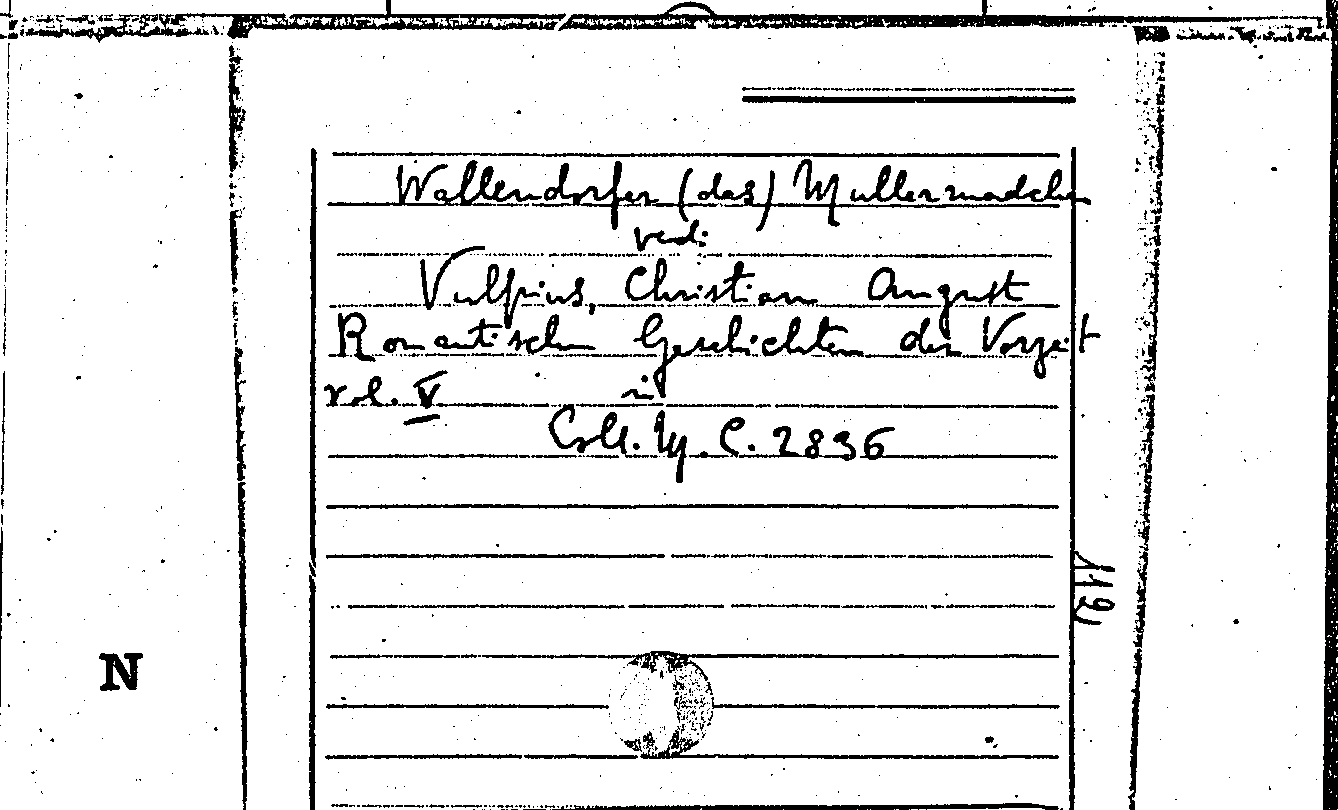 Wallendorfer (das) Mullermadchen
vedi
Vulpius, Christian August
Romantischen Geschichten der Vorzeit
vol. V
in
Coll. M. C. 2836
119
N